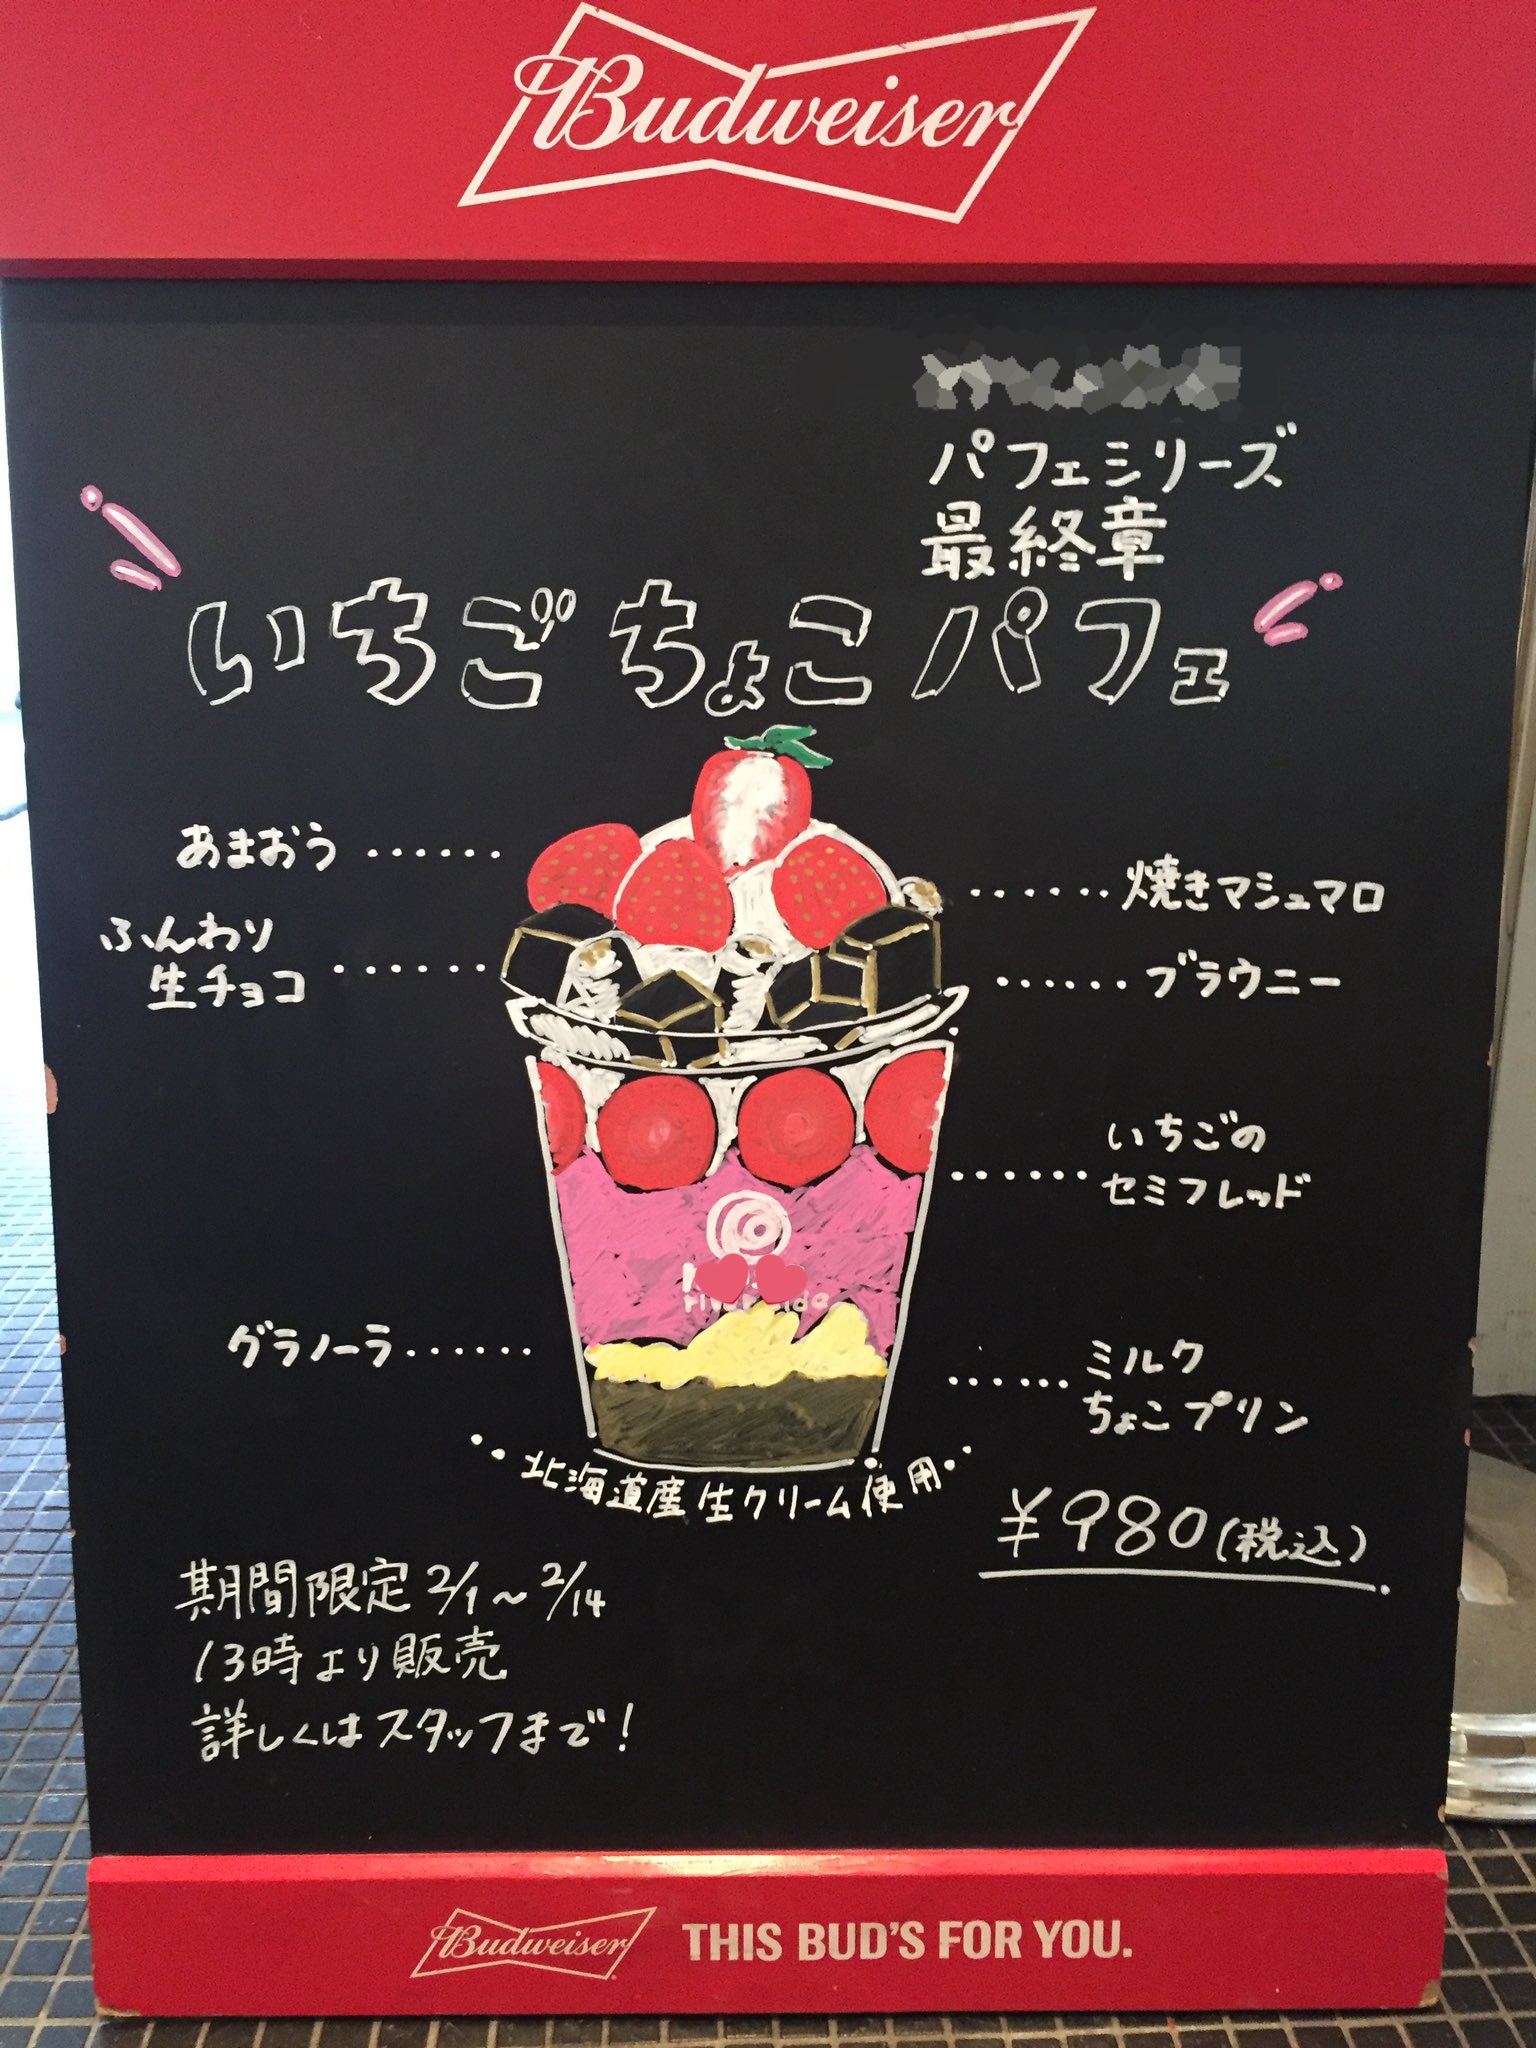 Budweiser
パフェシリーズ
最終章
いちごちょこパフェ
あまおう
焼きマシュマロ
ふんわり
生チョコ
ブラウニー
いちごの
セミフレッド
グラノーラ
ミルク
ちょこプリン
北海道産生クリーム使用
¥980(税込)
期間限定2/1〜2/14
13時より販売
詳しくはスタッフまで!
Budweiser THIS BUD'S FOR YOU.